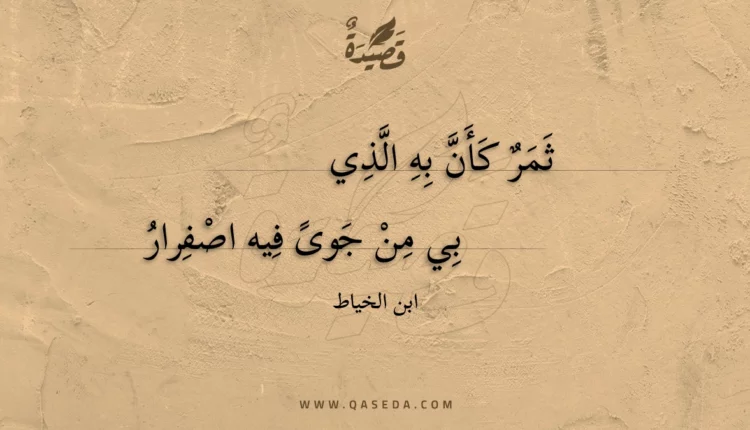 قَصِيْدَةٌ
ثَمَرٌ كَأَنَّ بِهِ الَّذِي
بِي مِنْ جَوىً فِيه اصْفِرارُ
ابن الخياط
WWW.QASEDA.COM